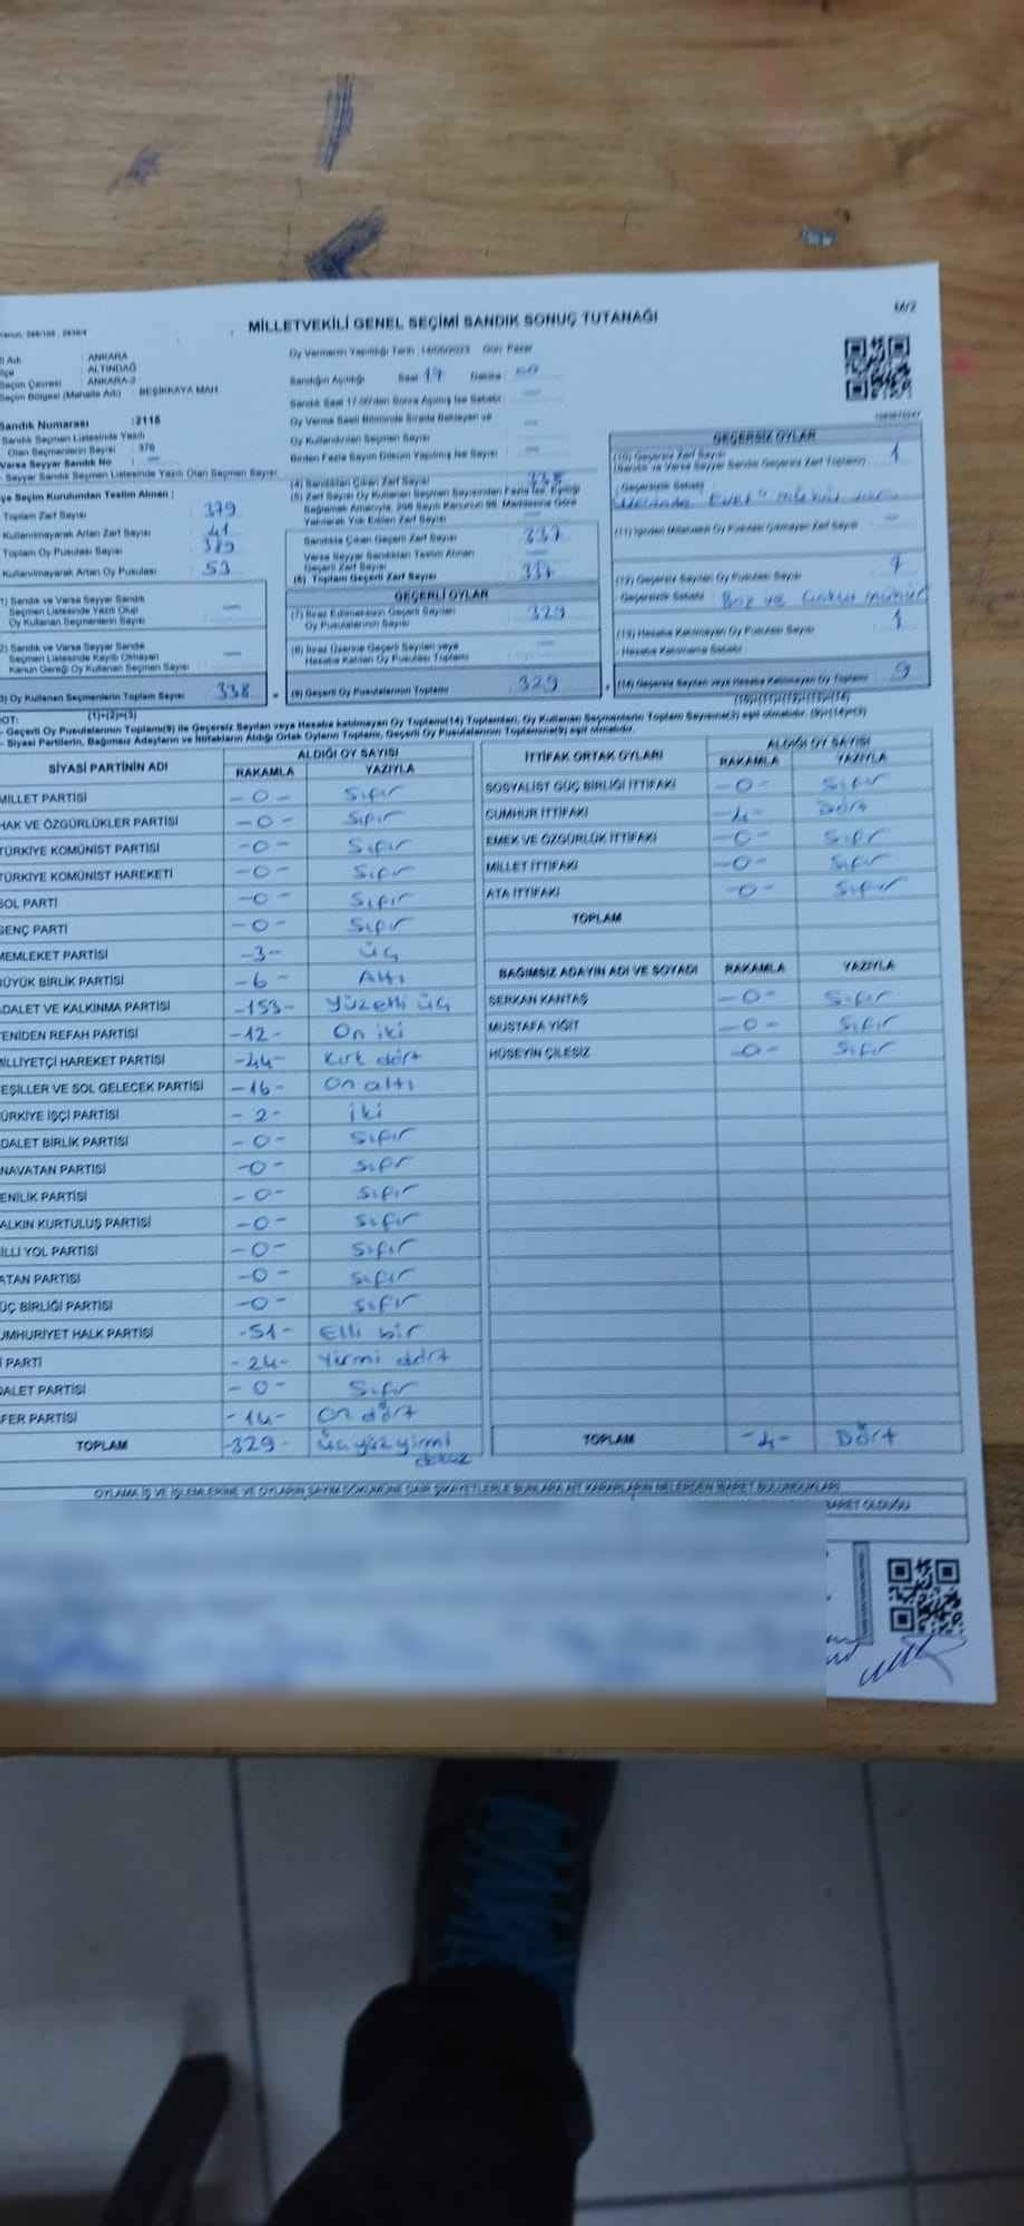 M/2
MİLLETVEKİLİ GENEL SEÇİMİ SANDIK SONUÇ TUTANAĞI
ANKARA
ALTINDAĞ
Seçim Çevresi : ANKARA-2
Seçim Bölgesi (Mahalle Adı) : BEŞİKKAYA MAH.
Oy Vermenin Yapıldığı Tarih : 14/05/2023 Gün: Pazar
Sandığın Açıldığı Saat 17 Dakika
Sandık Saat 17.00'den Sonra Açılmış İse Sebebi
Oy Verme Saati Bitiminde Sırada Bekleyen ve
Oy Kullandırılan Seçmen Sayısı
Birden Fazla Sayım Döküm Yapılmış İse Sayısı
Sandık Numarası :2116
Sandık Seçmen Listesinde Yazılı
Olan Seçmenlerin Sayısı : 376
Varsa Seyyar Sandık No
Seyyar Sandık Seçmen Listesinde Yazılı Olan Seçmen Sayısı
Seçim Kurulundan Teslim Alınan ;
Toplam Zarf Sayısı 379
Kullanılmayarak Artan Zarf Sayısı 41
Toplam Oy Pusulası Sayısı
Kullanılmayarak Artan Oy Pusulası 53
1) Sandık ve Varsa Seyyar Sandık
Seçmen Listesinde Yazılı Olup
Oy Kullanan Seçmenlerin Sayısı —
2) Sandık ve Varsa Seyyar Sandık
Seçmen Listesinde Kayıtlı Olmayan
Kanun Gereği Oy Kullanan Seçmen Sayısı —
3) Oy Kullanan Seçmenlerin Toplam Sayısı 338
(1)+(2)=(3)
(4) Sandıktan Çıkan Zarf Sayısı
(5) Zarf Sayısı Oy Kullanan Seçmen Sayısından Fazla İse, Eşitliği
Sağlamak Amacıyla, 298 Sayılı Kanunun 98. Maddesine Göre
Yakılarak Yok Edilen Zarf Sayısı
Sandıkta Çıkan Geçerli Zarf Sayısı 337
Varsa Seyyar Sandıktan Teslim Alınan
Geçerli Zarf Sayısı —
(6) Toplam Geçerli Zarf Sayısı 337
GEÇERLİ OYLAR
(7) İtiraz Edilmeksizin Geçerli Sayılan
Oy Pusulalarının Sayısı 329
(8) İtiraz Üzerine Geçerli Sayılan veya
Hesaba Katılan Oy Pusulası Toplamı —
(9) Geçerli Oy Pusulalarının Toplamı 329
GEÇERSİZ OYLAR
(10) Geçersiz Zarf Sayısı 1
(Sandık ve Varsa Seyyar Sandık Geçersiz Zarf Toplamı)
Geçersizlik Sebebi
(11) İçinden Milletvekili Oy Pusulası Çıkmayan Zarf Sayısı —
(12) Geçersiz Sayılan Oy Pusulası Sayısı 7
Geçersizlik Sebebi
(13) Hesaba Katılmayan Oy Pusulası Sayısı 1
Hesaba Katılmama Sebebi
(14) Geçersiz Sayılan veya Hesaba Katılmayan Oy Toplamı 9
(10)+(11)+(12)+(13)=(14)
- Geçerli Oy Pusulalarının Toplamı(9) ile Geçersiz Sayılan veya Hesaba katılmayan Oy Toplamı(14) Toplamları, Oy Kullanan Seçmenlerin Toplam Sayısına(3) eşit olmalıdır. (9)+(14)=(3)
- Siyasi Partilerin, Bağımsız Adayların ve İttifakların Aldığı Ortak Oyların Toplamı, Geçerli Oy Pusulalarının Toplamına(9) eşit olmalıdır.
SİYASİ PARTİNİN ADI ALDIĞI OY SAYISI
RAKAMLA YAZIYLA
MİLLET PARTİSİ -0- Sıfır
HAK VE ÖZGÜRLÜKLER PARTİSİ -0- Sıfır
TÜRKİYE KOMÜNİST PARTİSİ -0- Sıfır
TÜRKİYE KOMÜNİST HAREKETİ -0- Sıfır
SOL PARTİ -0- Sıfır
GENÇ PARTİ -0- Sıfır
MEMLEKET PARTİSİ -3- Üç
BÜYÜK BİRLİK PARTİSİ -6- Altı
DALET VE KALKINMA PARTİSİ -153- Yüzelli üç
ENİDEN REFAH PARTİSİ -12- On iki
İLLİYETÇİ HAREKET PARTİSİ -44- Kırk dört
EŞİLLER VE SOL GELECEK PARTİSİ -16- On altı
ÜRKİYE İŞÇİ PARTİSİ -2- iki
DALET BİRLİK PARTİSİ -0- Sıfır
NAVATAN PARTİSİ -0- Sıfır
ENİLİK PARTİSİ -0- Sıfır
ALKIN KURTULUŞ PARTİSİ -0- Sıfır
İLLİ YOL PARTİSİ -0- Sıfır
ATAN PARTİSİ -0- Sıfır
ÜÇ BİRLİĞİ PARTİSİ -0- Sıfır
UMHURİYET HALK PARTİSİ -51- Elli bir
İ PARTİ -24- Yirmi dört
DALET PARTİSİ -0- Sıfır
FER PARTİSİ -14- On dört
TOPLAM -329- üçyüzyirmi dokuz
İTTİFAK ORTAK OYLARI ALDIĞI OY SAYISI
RAKAMLA YAZIYLA
SOSYALİST GÜÇ BİRLİĞİ İTTİFAKI -0- Sıfır
CUMHUR İTTİFAKI -4- Dört
EMEK VE ÖZGÜRLÜK İTTİFAKI -0- Sıfır
MİLLET İTTİFAKI -0- Sıfır
ATA İTTİFAKI -0- Sıfır
TOPLAM
BAĞIMSIZ ADAYIN ADI VE SOYADI RAKAMLA YAZIYLA
SERKAN KANTAŞ -0- Sıfır
MUSTAFA YİĞİT -0- Sıfır
HÜSEYİN ÇİLESİZ -0- Sıfır
TOPLAM -4- Dört
OYLAMA İŞ VE İŞLEMLERİNE VE OYLARIN SAYIM DÖKÜMÜNE DAİR ŞİKAYETLERLE BUNLARA AİT KARARLARIN NELERDEN İBARET BULUNDUKLARI
BARET OLDUĞU